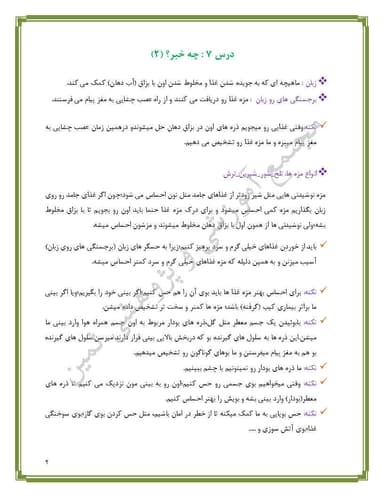 درس ۷ : چه خبر؟ (۲)
زبان : ماهیچه ای که به جویده شدن غذا و مخلوط شدن اون با بزاق (آب دهان) کمک می کند.
برجستگی های رو زبان : مزه غذا رو دریافت می کنند و از راه عصب چشایی به مغز پیام می فرستند.
نکته:وقتی غذایی رو میجویم ذره های اون در بزاق دهان حل میشوندو درهمین زمان عصب چشایی به
مغز پیام میبره و ما مزه غذا رو تشخیص می دهیم.
انواع مزه ها: تلخ_شور_شیرین_ترش
مزه نوشیدنی هایی مثل شیر زودتر از غذاهای جامد مثل نون احساس می شود؛چون اگر غذای جامد رو روی
زبان بگذاریم مزه کمی احساس میشود و برای درک مزه غذا حتما باید اون رو بجویم تا با بزاق مخلوط
بشه؛ولی نوشیدنی ها از همون اول با بزاق دهان مخلوط میشوند و مزشون احساس میشه.
باید از خوردن غذاهای خیلی گرم و سرد پرهیز کنیم؛زیرا به حسگر های زبان (برجستگی های روی زبان)
آسیب میزنن و به همین دلیله که مزه غذاهای خیلی گرم و سرد کمتر احساس میشه.
نکته: برای احساس بهتر مزه غذا ها باید بوی آن را هم حس کنیم؛اگر بینی خود را بگیریم؛ویا اگر بینی
ما براثر بیماری کیپ (گرفته) باشه؛ مزه ها کمتر و سخت تر تشخیص داده میشن.
نکته: بابوئیدن یک جسم معطر مثل گل،ذره های بودار مربوط به اون جسم همراه هوا وارد بینی ما
میشن؛این ذره ها به سلول های گیرنده بو که دربخش بالایی بینی قرار دارند میرسن؛سلول های گیرنده
بو هم به مغز پیام میفرستن و ما بوهای گوناگون رو تشخیص میدهیم.
نکته: ما ذره های بودار رو نمیتونیم با چشم ببینیم.
نکته: وقتی میخواهیم بوی جسمی رو حس کنیم؛اون رو به بینی مون نزدیک می کنیم تا ذره های
معطر(بودار) وارد بینی بشه و بویش را بهتر احساس کنیم.
نکته: حس بویایی به ما کمک میکنه تا از خطر در امان باشیم، مثل حس کردن بوی گاز؛بوی سوختگی
غذا؛بوی آتش سوزی و ....
۲